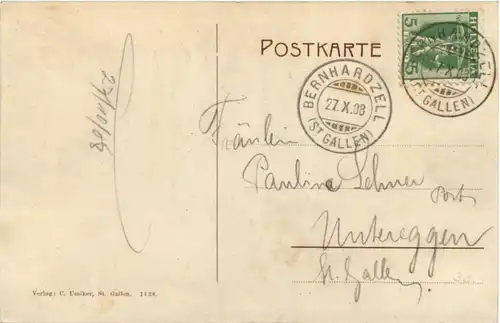 POSTKARTE
HELVETIA
5 5
BERNHARDZELL
27.X.08
(ST GALLEN)
BERNHARDZELL
27.X.08
(ST GALLEN)
27/X/08
Fräulein
Pauline Lehner
Post
Untereggen
St. Gallen
Verlag: C. Umiker, St. Gallen. 1128.